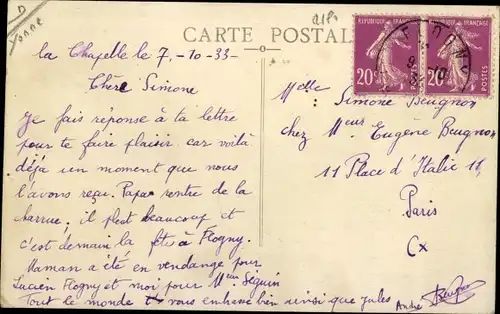 D
Yonne
CARTE POSTALE
la Chapelle le 7-10-33-
Chère Simone
Je fais réponse à ta lettre
pour te faire plaisir car voilà
déjà un moment que nous
l'avons reçu. Papa rentre de la
charrue, il pleut beaucoup et
c'est demain la fête à Flogny.
Maman a été en vendange pour
Lucien Flogny et moi pour Meur Séguin
Tout le monde vous embrasse bien ainsi que Jules
André
RÉPUBLIQUE FRANÇAISE
20c POSTES
RÉPUBLIQUE FRANÇAISE
20c POSTES
Melle
Simone Beugnon
chez Meur Eugène Beugnon
11 Place d'Italie 11
Paris